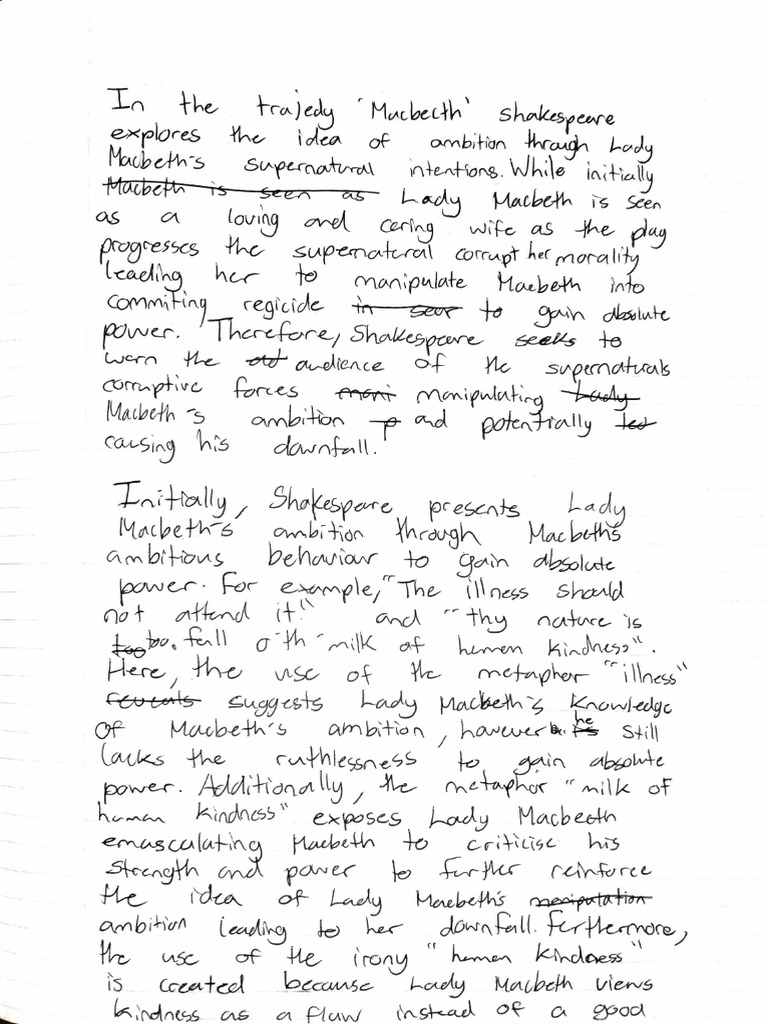 In the trajedy 'Macbecth' shakespeare
explores the idea of ambition through Lady
Macbeth's supernatural intentions. While initially
Macbeth is seen as Lady Macbeth is seen
as a loving and caring wife as the play
progresses the supernatural corrupt her morality
leading her to manipulate Macbeth into
commiting regicide in sear to gain absolute
power. Therefore, Shakespeare seeks to
warn the aud audience of the supernaturals
corruptive forces mani manipulating Lady
Macbeth's ambition p and potentially led
causing his downfall.
Initially, Shakespare presents Lady
Macbeth's ambition through Macbeth's
ambitious behaviour to gain absolute
power. For example, "The illness should
not attend it" and "thy nature is
too too. full o'th'milk of human kindness".
Here, the use of the metaphor "illness"
reveals suggests Lady Macbeth's knowledge
of Macbeth's ambition, however he is still
lacks the ruthlessness to gain absolute
power. Additionally, the metaphor "milk of
human kindness" exposes Lady Macbeeth
emasculating Macbeth to criticise his
strength and power to further reinforce
the idea of Lady Macbeth's manipulation
ambition leading to her downfall. Furthermore,
the use of the irony "human kindness"
is created because Lady Macbeth views
kindness as a flaw instead of a good